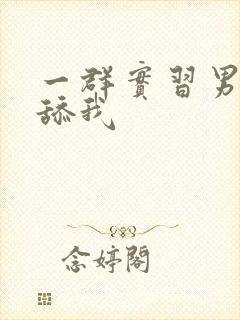 一群實習男
舔我
念婷閣